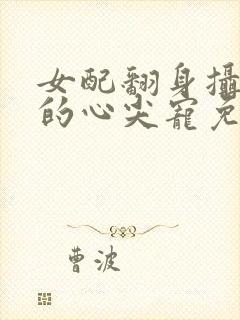 女配翻身攝
的心尖寵免
曹波